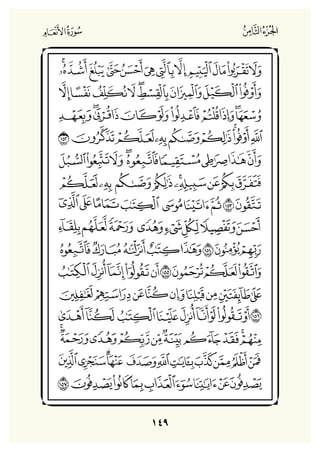 الجُزْءُ الثَّامِنُ سُورَةُ الأَنْعَامِ
وَلَا تَقْرَبُوا۟ مَالَ ٱلْيَتِيمِ إِلَّا بِٱلَّتِى هِىَ أَحْسَنُ حَتَّىٰ يَبْلُغَ أَشُدَّهُۥ ۖ
وَأَوْفُوا۟ ٱلْكَيْلَ وَٱلْمِيزَانَ بِٱلْقِسْطِ ۖ لَا نُكَلِّفُ نَفْسًا إِلَّا
وُسْعَهَا ۖ وَإِذَا قُلْتُمْ فَٱعْدِلُوا۟ وَلَوْ كَانَ ذَا قُرْبَىٰ ۖ وَبِعَهْدِ
ٱللَّهِ أَوْفُوا۟ ۚ ذَٰلِكُمْ وَصَّىٰكُم بِهِۦ لَعَلَّكُمْ تَذَكَّرُونَ ١٥٢
وَأَنَّ هَٰذَا صِرَٰطِى مُسْتَقِيمًا فَٱتَّبِعُوهُ ۖ وَلَا تَتَّبِعُوا۟ ٱلسُّبُلَ
فَتَفَرَّقَ بِكُمْ عَن سَبِيلِهِۦ ۚ ذَٰلِكُمْ وَصَّىٰكُم بِهِۦ لَعَلَّكُمْ
تَتَّقُونَ ١٥٣ ثُمَّ ءَاتَيْنَا مُوسَى ٱلْكِتَٰبَ تَمَامًا عَلَى ٱلَّذِىٓ
أَحْسَنَ وَتَفْصِيلًا لِّكُلِّ شَىْءٍ وَهُدًى وَرَحْمَةً لَّعَلَّهُم بِلِقَآءِ
رَبِّهِمْ يُؤْمِنُونَ ١٥٤ وَهَٰذَا كِتَٰبٌ أَنزَلْنَٰهُ مُبَارَكٌ فَٱتَّبِعُوهُ
وَٱتَّقُوا۟ لَعَلَّكُمْ تُرْحَمُونَ ١٥٥ أَن تَقُولُوٓا۟ إِنَّمَآ أُنزِلَ ٱلْكِتَٰبُ
عَلَىٰ طَآئِفَتَيْنِ مِن قَبْلِنَا وَإِن كُنَّا عَن دِرَاسَتِهِمْ لَغَٰفِلِينَ
١٥٦ أَوْ تَقُولُوا۟ لَوْ أَنَّآ أُنزِلَ عَلَيْنَا ٱلْكِتَٰبُ لَكُنَّآ أَهْدَىٰ
مِنْهُمْ ۚ فَقَدْ جَآءَكُم بَيِّنَةٌ مِّن رَّبِّكُمْ وَهُدًى وَرَحْمَةٌ ۚ
فَمَنْ أَظْلَمُ مِمَّن كَذَّبَ بِـَٔايَٰتِ ٱللَّهِ وَصَدَفَ عَنْهَا ۗ سَنَجْزِى ٱلَّذِينَ
يَصْدِفُونَ عَنْ ءَايَٰتِنَا سُوٓءَ ٱلْعَذَابِ بِمَا كَانُوا۟ يَصْدِفُونَ ١٥٧
١٤٩